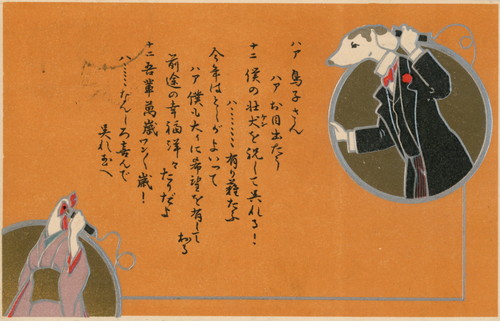 ハア鳥子さん
ハアお目出たう
ナニ僕の壮犬を祝して呉れる!
ケン
ハヽヽヽヽ有り難たふ
今年はとしがよいつて
ハア僕も大いに希望を有して
おる
前途の幸福洋々たりだよ
ナニ吾輩萬歳ワン〱歳!
ハヽヽなんしろ喜んで
呉れ玉へ